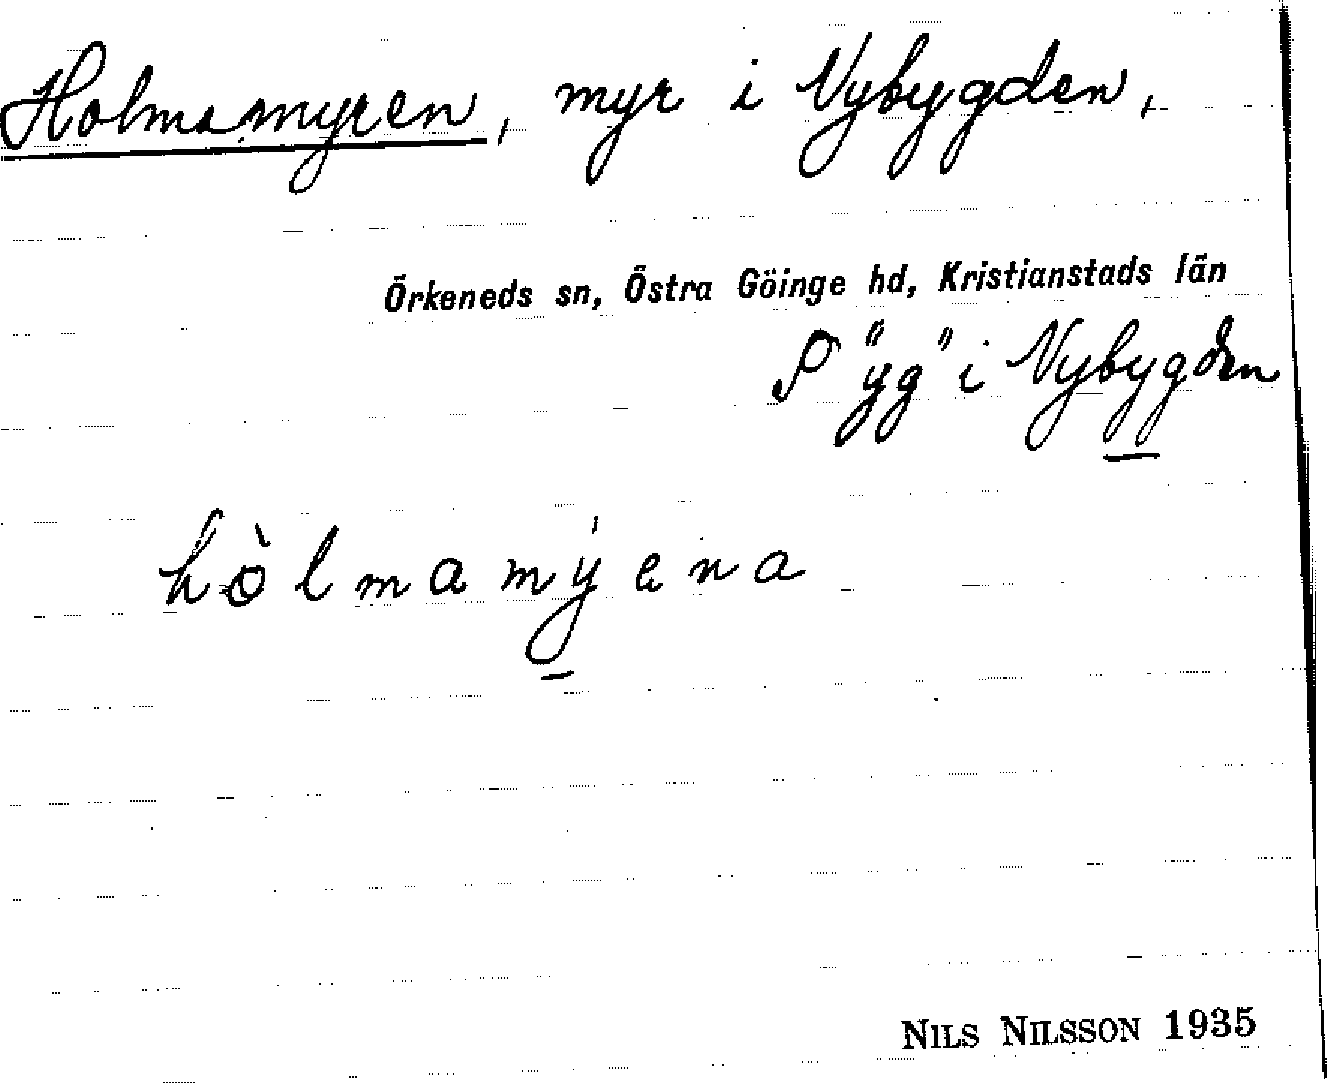 Holmamyren, myr i Nybygden,
Örkeneds sn, Östra Göinge hd, Kristianstads län
"yg" i Nybygden
hòlmamýena
NILS NILSSON 1935